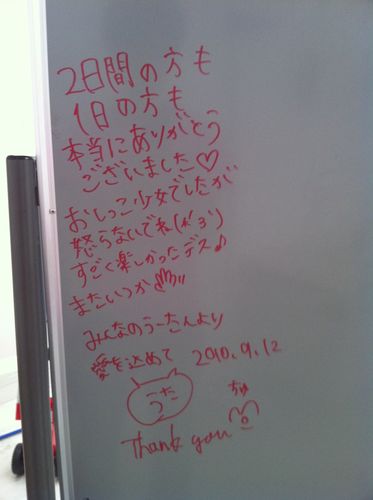 2日間の方も
1日の方も
本当にありがとう
ございました♡
おしっこ少女でしたが
怒らないでね(*´3`)
すごく楽しかったデス♪
またいつか
みんなのうーたんより
愛を込めて 2010.9.12
うた
ちゅ
Thank you